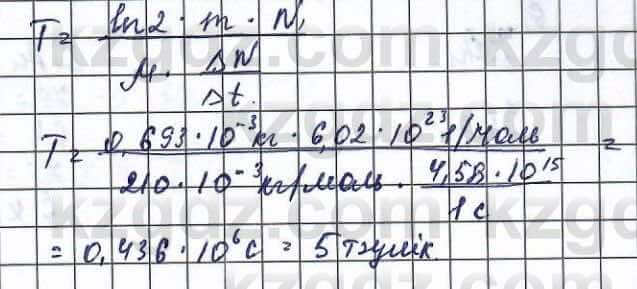 T = ln2 · m · N,
μ · ΔN
Δt.
T = 0,693 · 10⁻³кг · 6,02 · 10²³1/моль =
210 · 10⁻³кг/моль · 4,58 · 10¹⁵
1с
= 0,436 · 10⁶с = 5 тәулік
kzgdz.com